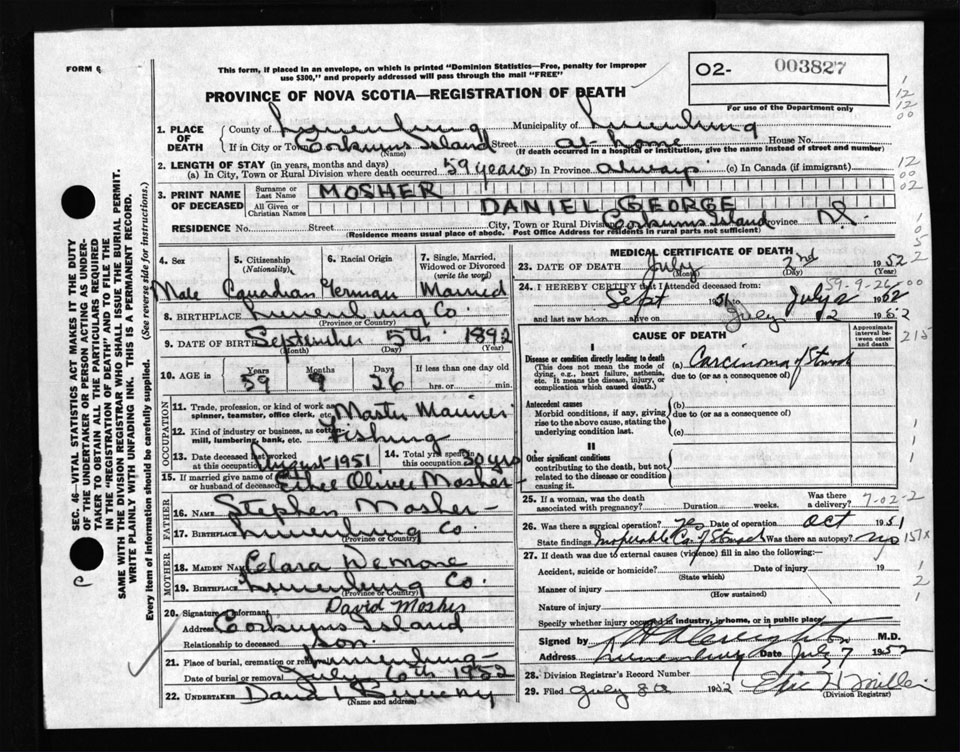 FORM 6
This form, if placed in an envelope, on which is printed "Dominion Statistics—Free, penalty for improper
use $300," and properly addressed will pass through the mail "FREE"
02- 003827
For use of the Department only
PROVINCE OF NOVA SCOTIA—REGISTRATION OF DEATH
1. PLACE OF DEATH
County of Lunenburg Municipality of Lunenburg
If in City or Town Corkums Island Street at home House No.
(Name) (If death occurred in a hospital or institution, give the name instead of street and number)
2. LENGTH OF STAY (in years, months and days)
(a) In City, Town or Rural Division where death occurred 59 years (b) In Province always (c) In Canada (if immigrant)
3. PRINT NAME OF DECEASED
Surname or Last Name MOSHER
All Given or Christian Names DANIEL GEORGE
RESIDENCE No. Street City, Town or Rural Division Corkums Island Province N.S.
(Residence means usual place of abode. Post Office Address for residents in rural parts not sufficient)
4. Sex 5. Citizenship (Nationality) 6. Racial Origin 7. Single, Married, Widowed or Divorced (write the word)
Male Canadian German Married
8. BIRTHPLACE Lunenburg Co.
(Province or Country)
9. DATE OF BIRTH September 5th 1892
(Month) (Day) (Year)
10. AGE in Years Months Days If less than one day
59 9 26 hrs. or min.
OCCUPATION
11. Trade, profession, or kind of work as spinner, teamster, office clerk, etc. Master Mariner
12. Kind of industry or business, as cotton mill, lumbering, bank, etc. Fishing
13. Date deceased last worked at this occupation August 1951 14. Total yrs. spent in this occupation 30 yrs
15. If married give name of wife or husband of deceased Olivee Mosher
FATHER
16. Name Stephen Mosher
17. Birthplace Lunenburg Co.
(Province or Country)
MOTHER
18. MAIDEN NAME Clara Demone
19. BIRTHPLACE Lunenburg Co.
(Province or Country)
20. Signature of informant David Mosher
Address Corkums Island
Relationship to deceased Son
21. Place of burial, cremation or removal Lunenburg
Date of burial or removal July 6th 1952
22. UNDERTAKER
(Name and address)
MEDICAL CERTIFICATE OF DEATH
23. DATE OF DEATH July 2nd 1952
(Month) (Day) (Year)
59-9-26
24. I HEREBY CERTIFY that I attended deceased from:
Sept 1951 to July 2 1952
and last saw him alive on July 2 1952
CAUSE OF DEATH
Approximate interval between onset and death
I
Disease or condition directly leading to death
(This does not mean the mode of dying, e.g., heart failure, asthenia, etc. It means the disease, injury, or complication which caused death.)
(a) Carcinoma of Stomach
due to (or as a consequence of)
Antecedent causes
Morbid conditions, if any, giving rise to the above cause, stating the underlying condition last.
(b)
due to (or as a consequence of)
(c)
II
Other significant conditions
contributing to the death, but not related to the disease or condition causing it.
25. If a woman, was the death associated with pregnancy? Duration weeks. Was there a delivery?
7-02-2
26. Was there a surgical operation? Yes Date of operation Oct 1951
State findings Inoperable Ca. of Stomach Was there an autopsy? No
157x
27. If death was due to external causes (violence) fill in also the following:—
Accident, suicide or homicide? Date of injury 19
(State which)
Manner of injury
(How sustained)
Nature of injury
Specify whether injury occurred in industry, in home, or in public place
Signed by H A Creighton M.D.
Address Lunenburg Date July 7 1952
28. Division Registrar's Record Number
29. Filed July 8th 1952
(Division Registrar)
SEC. 46—VITAL STATISTICS ACT MAKES IT THE DUTY
OF THE UNDERTAKER OR PERSON ACTING AS UNDER-
TAKER TO OBTAIN ALL THE PARTICULARS REQUIRED
IN THE "REGISTRATION OF DEATH" AND TO FILE THE
SAME WITH THE DIVISION REGISTRAR WHO SHALL ISSUE THE BURIAL PERMIT.
WRITE PLAINLY WITH UNFADING INK. THIS IS A PERMANENT RECORD.
Every item of information should be carefully supplied. (See reverse side for instructions.)